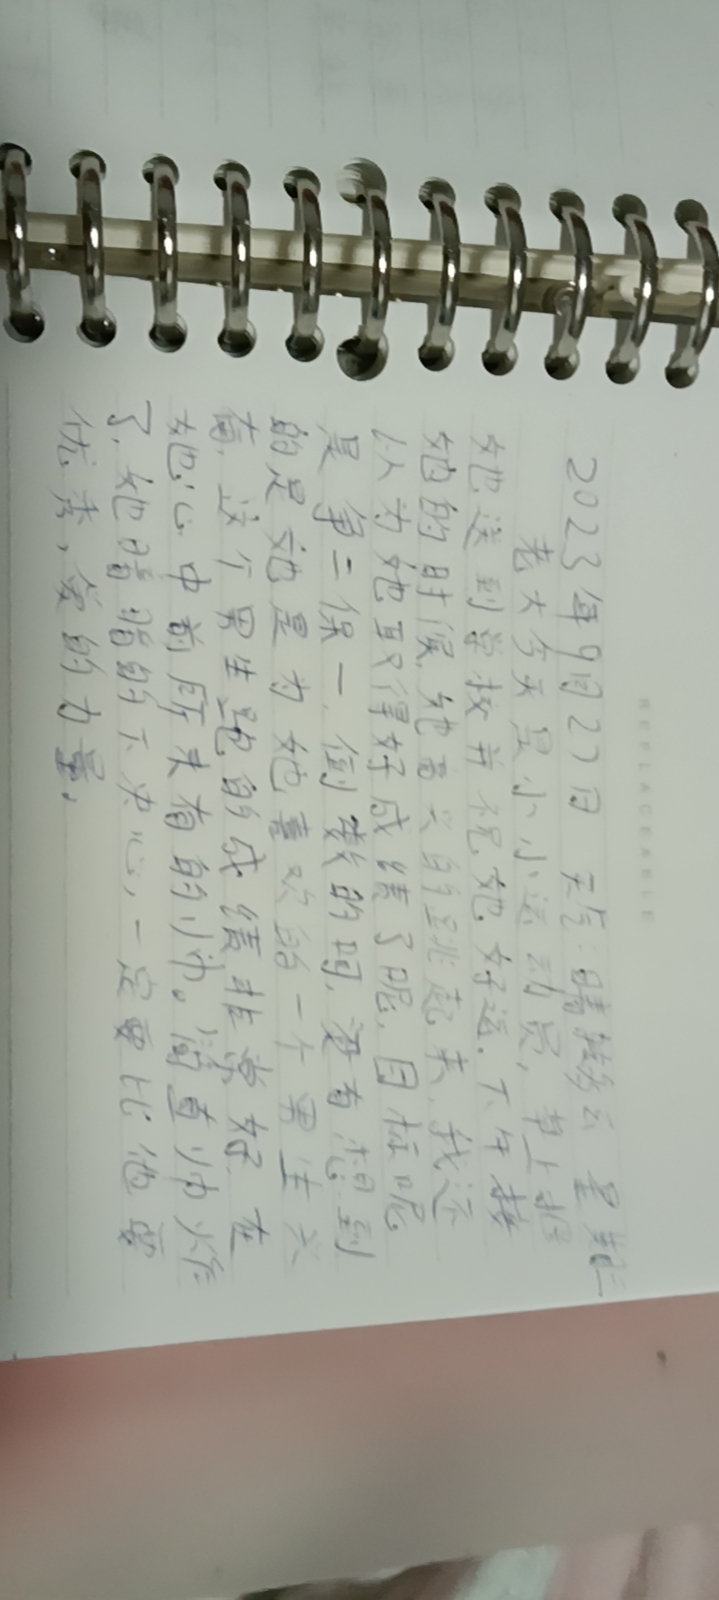 REPLACEABLE
2023年9月27日 天气:晴转多云 星期三
老大今天是小小运动员,早上把
她送到学校并祝她好运.下午接
她的时候,她高兴的跳起来.我还
以为她取得好成绩了呢.目标呢
是争二保一.倒数的呵,没有想到
的是她是为她喜欢给一个男生
有.这个男生跑的成绩非常好.在
她心中前所未有的小帅。简直帅炸
了.她暗暗的下决心,一定要比他要
优秀,爱的力量.